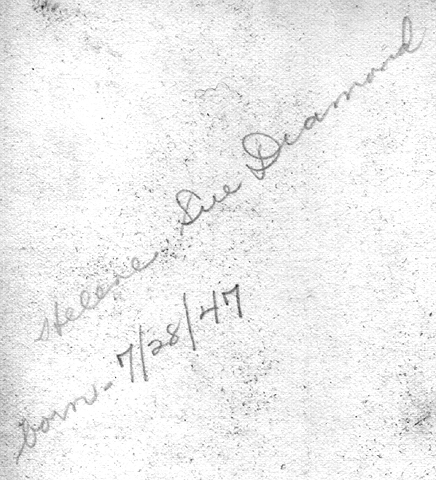 Helene Sue Diamond
born - 7/28/47